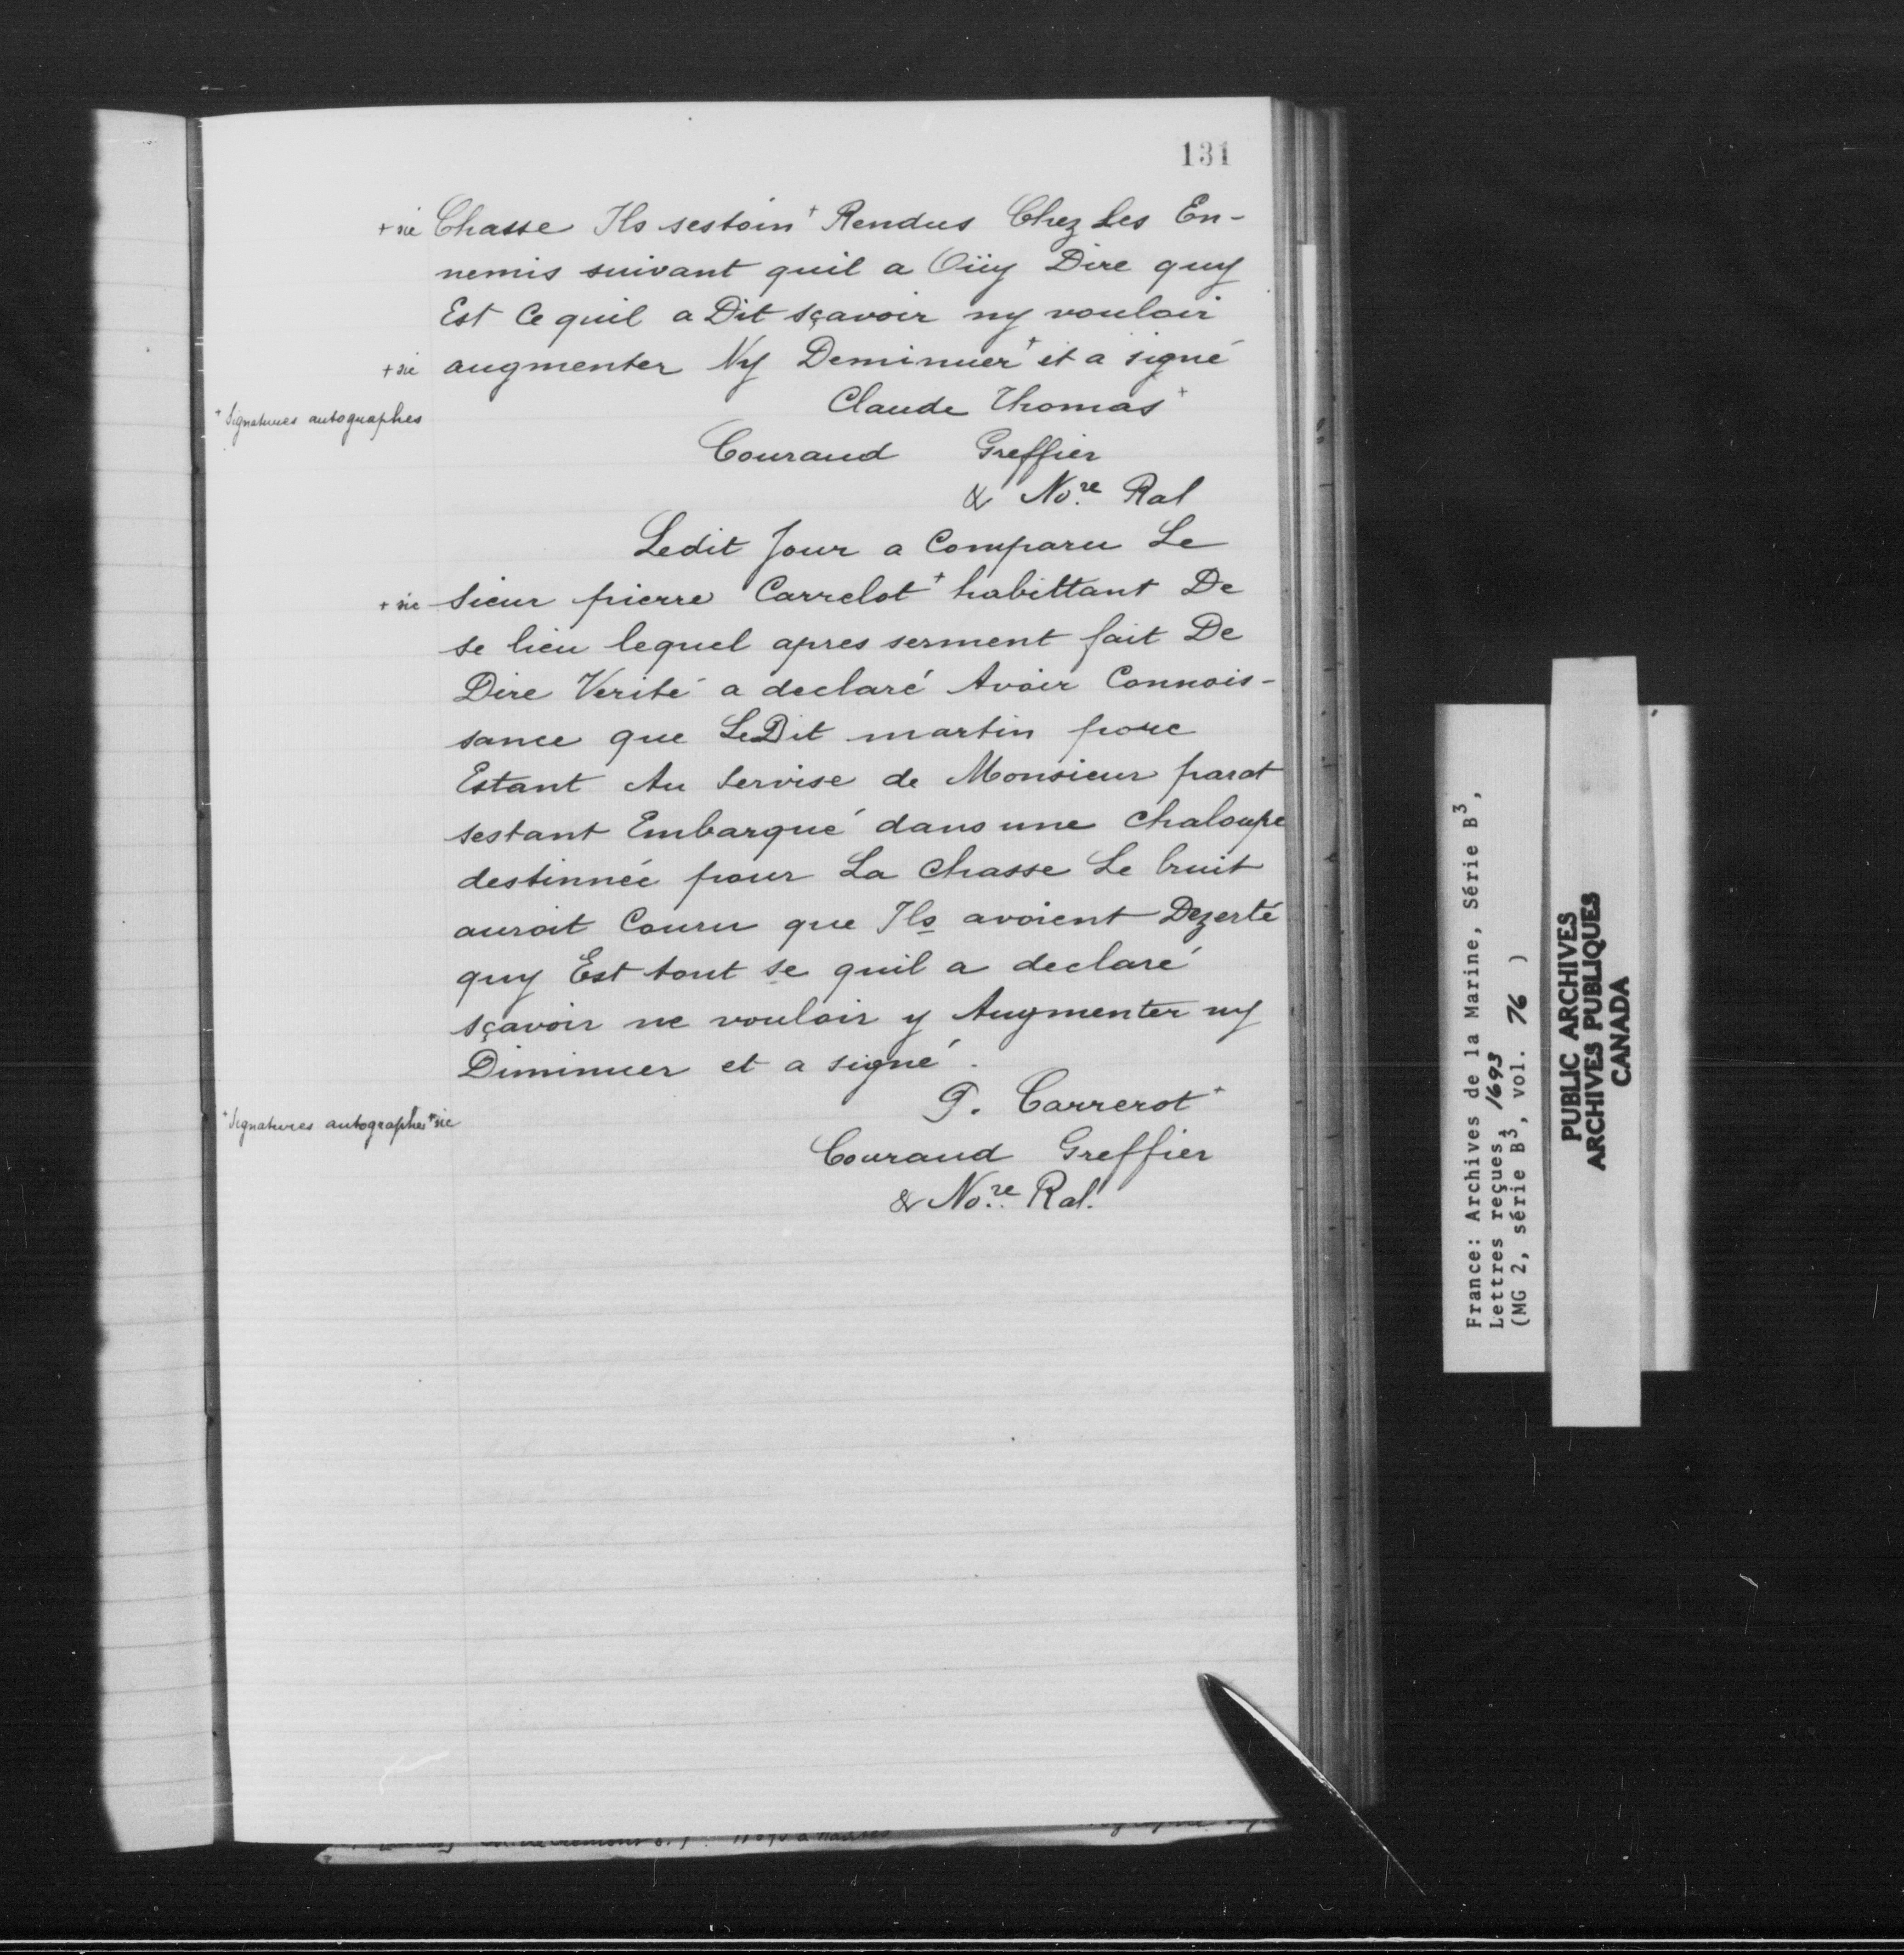 131
+ sic Chasse Ils sestoin+ Rendus Chez Les En-
nemis suivant quil a Oüy Dire quy
Est Ce quil a Dit sçavoir ny vouloir
+ sic augmenter Ny Deminuer+ et a signé
Claude Thomas+
+ Signatures autographes
Couraud Greffier
& No.re Ral
Ledit Jour a Comparu Le
+ sic sieur pierre Carrelot+ habittant De
se lieu lequel apres serment fait De
Dire Verité a declaré Avoir Connois-
sance que LeDit martin porc
Estant Au Servise de Monsieur parat
sestant Embarqué dans une chaloupe
destinnée pour La chasse Le bruit
auroit Couru que Ils avoient Dezerté
quy Est tout se quil a declaré
sçavoir ne vouloir y Augmenter ny
Diminuer et a signé.
P. Carrerot+
+ Signatures autographes + sic
Couraud Greffier
& No.re Ral.
France: Archives de la Marine, Série B3,
Lettres reçues, 1693
(MG 2, série B3, vol. 76 )
PUBLIC ARCHIVES
ARCHIVES PUBLIQUES
CANADA